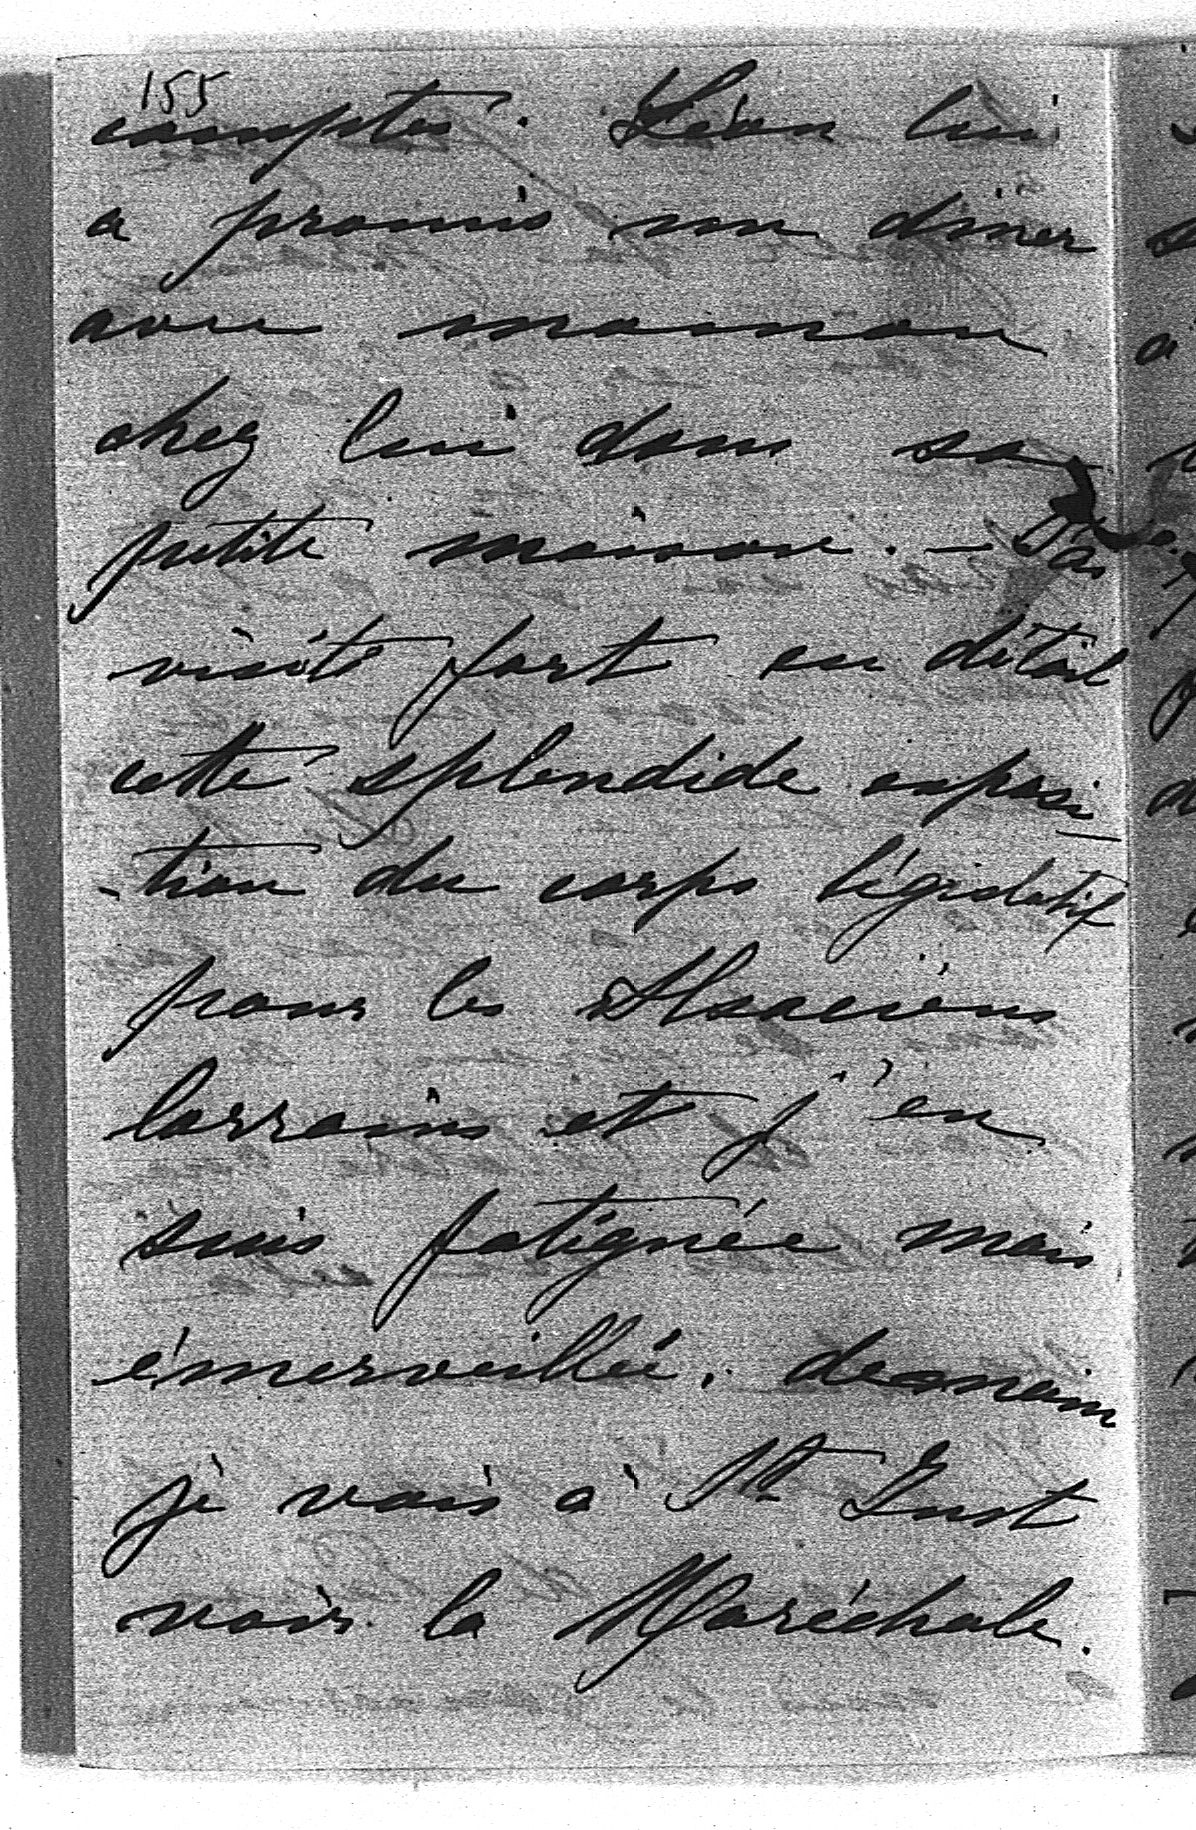 155
comptes. Léon lui
a promis un diner
avec maman
chez lui dans sa
petite maison. – J'ai
visité fort en détail
cette splendide exposi
-tion du corps législatif
pour les Alsaciens
lorrains et j'en
suis fatiguée mais
émerveillée. demain
je vais à St Just
voir la Maréchale.